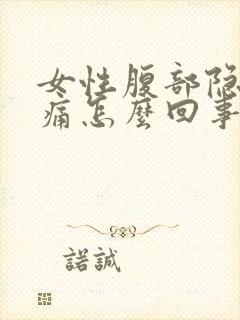 女性腹部隐
痛怎麼回事
諾誠